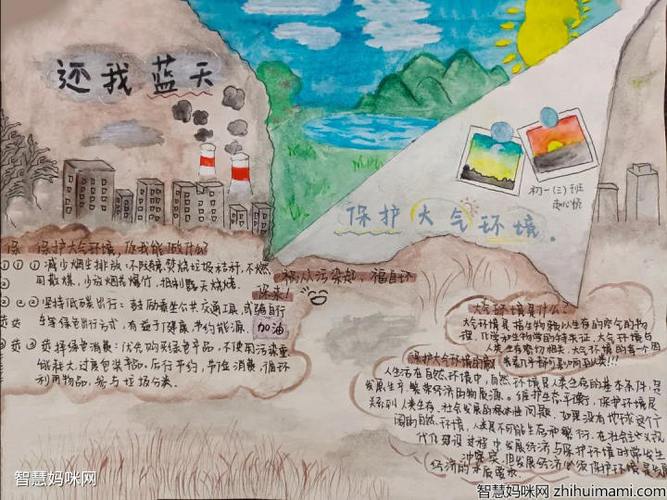 还我蓝天
初一(三)班
保护大气环境.
保护大气环境,你我能做什么?
祸从污染起,福自环
保来!
①减少烟尘排放:不随意焚烧垃圾秸秆,不燃
用散煤,少放烟花爆竹,抵制露天烧烤.
坚持低碳出行:鼓励乘坐公共交通工具,或骑自行
车等绿色出行方式,有益于健康,节约能源.
加油
选择绿色消费:优先购买绿色产品,不使用污染重
能耗大、过度包装产品,厉行节约,节俭消费,循环
利用物品,参与垃圾分类.
大气环境是什么:
大气环境是指生物赖以生存的空气的物
理、化学和生物学的特征证,大气环境与
人类生存密切相关,大气环境的每一个因
素几乎都可影响到人类!!!
保护大气环境的
人生活在自然环境中,自然环境是人类生存的基本条件,是
发展生产、繁荣经济的物质源。维护生态平衡,保护环境是
关系到人类生存、社会发展的根本性问题,如果没有地球这个
自然环境,人类是不可能生存和繁衍,在社会主义现
代化建设过程中发展经济与保护环境时常发生
冲突,但发展经济必须保护环境,是
经济的本质要求.
智慧妈咪网
智慧妈咪网 zhihuimami.com